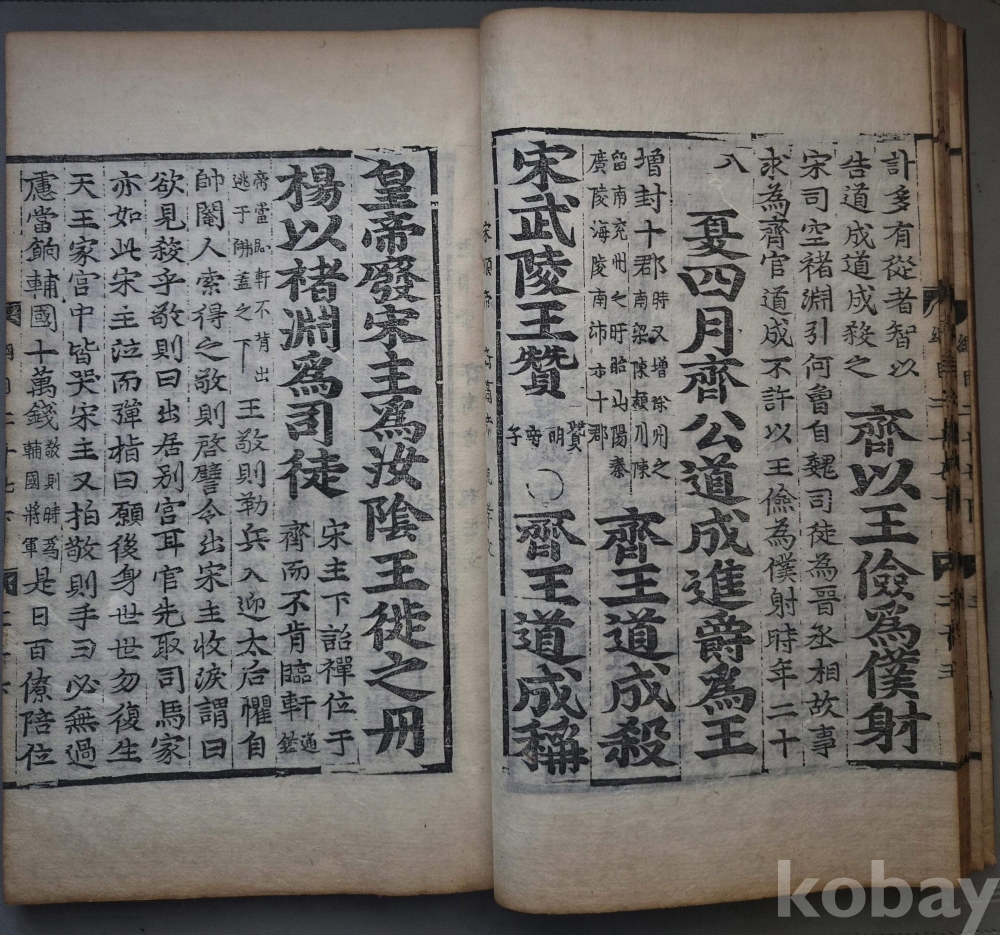 計多有從者智以
告道成道成殺之 齊以王儉為僕射
宋司空褚淵引何魯自魏司徒為晉丞相故事
求為齊官道成不許以王儉為僕射時年二十
八
夏四月齊公道成進爵為王
增封十郡時又增徐州之南梁陳潁川陳
留南兗州之盱眙山陽秦
廣陵海陵南沛亦十郡 齊王道成殺
宋武陵王贊贊明帝子 ○齊王道成稱
皇帝廢宋主為汝陰王徙之丹
楊以褚淵為司徒 宋主下詔禪位于
齊而不肯臨軒
帝當臨軒不肯出
逃于佛蓋之下 王敬則勒兵入迎太后懼自
帥閹人索得之敬則啓譬令出宋主收淚謂曰
欲見殺乎敬則曰出居別宮耳官先取司馬家
亦如此宋主泣而彈指曰願後身世世勿復生
天王家宮中皆哭宋主又拍敬則手曰必無過
慮當餉輔國十萬錢敬則時為輔國將軍是日百僚陪位
kobay